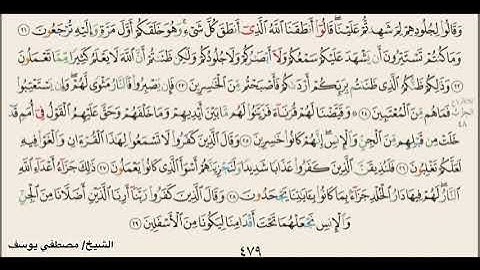 وَقَالُوا۟ لِجُلُودِهِمْ لِمَ شَهِدتُّمْ عَلَيْنَا ۖ قَالُوٓا۟ أَنطَقَنَا ٱللَّهُ ٱلَّذِىٓ أَنطَقَ كُلَّ شَىْءٍ وَهُوَ خَلَقَكُمْ أَوَّلَ مَرَّةٍ وَإِلَيْهِ تُرْجَعُونَ ٢١
وَمَا كُنتُمْ تَسْتَتِرُونَ أَن يَشْهَدَ عَلَيْكُمْ سَمْعُكُمْ وَلَآ أَبْصَٰرُكُمْ وَلَا جُلُودُكُمْ وَلَٰكِن ظَنَنتُمْ أَنَّ ٱللَّهَ لَا يَعْلَمُ كَثِيرًا مِّمَّا تَعْمَلُونَ
٢٢ وَذَٰلِكُمْ ظَنُّكُمُ ٱلَّذِى ظَنَنتُم بِرَبِّكُمْ أَرْدَىٰكُمْ فَأَصْبَحْتُم مِّنَ ٱلْخَٰسِرِينَ ٢٣ فَإِن يَصْبِرُوا۟ فَٱلنَّارُ مَثْوًى لَّهُمْ ۖ وَإِن يَسْتَعْتِبُوا۟
فَمَا هُم مِّنَ ٱلْمُعْتَبِينَ ٢٤ وَقَيَّضْنَا لَهُمْ قُرَنَآءَ فَزَيَّنُوا۟ لَهُم مَّا بَيْنَ أَيْدِيهِمْ وَمَا خَلْفَهُمْ وَحَقَّ عَلَيْهِمُ ٱلْقَوْلُ فِىٓ أُمَمٍ قَدْ
خَلَتْ مِن قَبْلِهِم مِّنَ ٱلْجِنِّ وَٱلْإِنسِ ۖ إِنَّهُمْ كَانُوا۟ خَٰسِرِينَ ٢٥ وَقَالَ ٱلَّذِينَ كَفَرُوا۟ لَا تَسْمَعُوا۟ لِهَٰذَا ٱلْقُرْءَانِ وَٱلْغَوْا۟ فِيهِ
لَعَلَّكُمْ تَغْلِبُونَ ٢٦ فَلَنُذِيقَنَّ ٱلَّذِينَ كَفَرُوا۟ عَذَابًا شَدِيدًا وَلَنَجْزِيَنَّهُمْ أَسْوَأَ ٱلَّذِى كَانُوا۟ يَعْمَلُونَ ٢٧ ذَٰلِكَ جَزَآءُ أَعْدَآءِ ٱللَّهِ
ٱلنَّارُ ۖ لَهُمْ فِيهَا دَارُ ٱلْخُلْدِ ۖ جَزَآءًۢ بِمَا كَانُوا۟ بِـَٔايَٰتِنَا يَجْحَدُونَ ٢٨ وَقَالَ ٱلَّذِينَ كَفَرُوا۟ رَبَّنَآ أَرِنَا ٱلَّذَيْنِ أَضَلَّانَا مِنَ ٱلْجِنِّ
وَٱلْإِنسِ نَجْعَلْهُمَا تَحْتَ أَقْدَامِنَا لِيَكُونَا مِنَ ٱلْأَسْفَلِينَ ٢٩
٤٧٩
الشيخ/ مصطفي يوسف